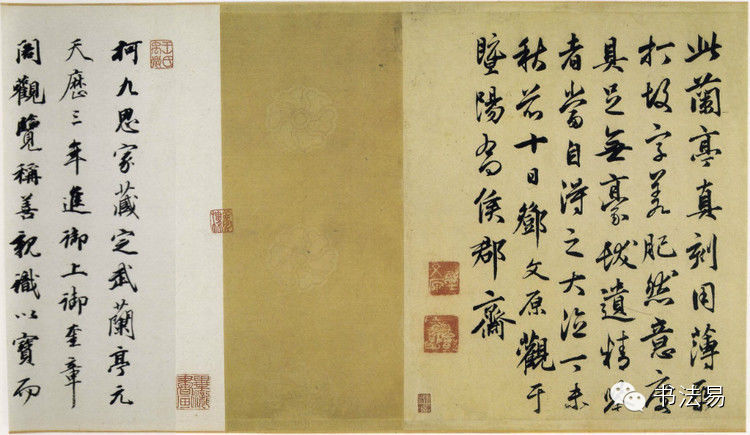 此蘭亭真刻用薄
打故字差肥然意度
具足無豪髮遺精鑒
者當自得之大德丁未
秋前十日鄧文原觀于
暨陽侯郡齋
柯九思家藏定武蘭亭元
天曆三年進御上御奎章
閣觀覽稱善親識以寶而
书法易